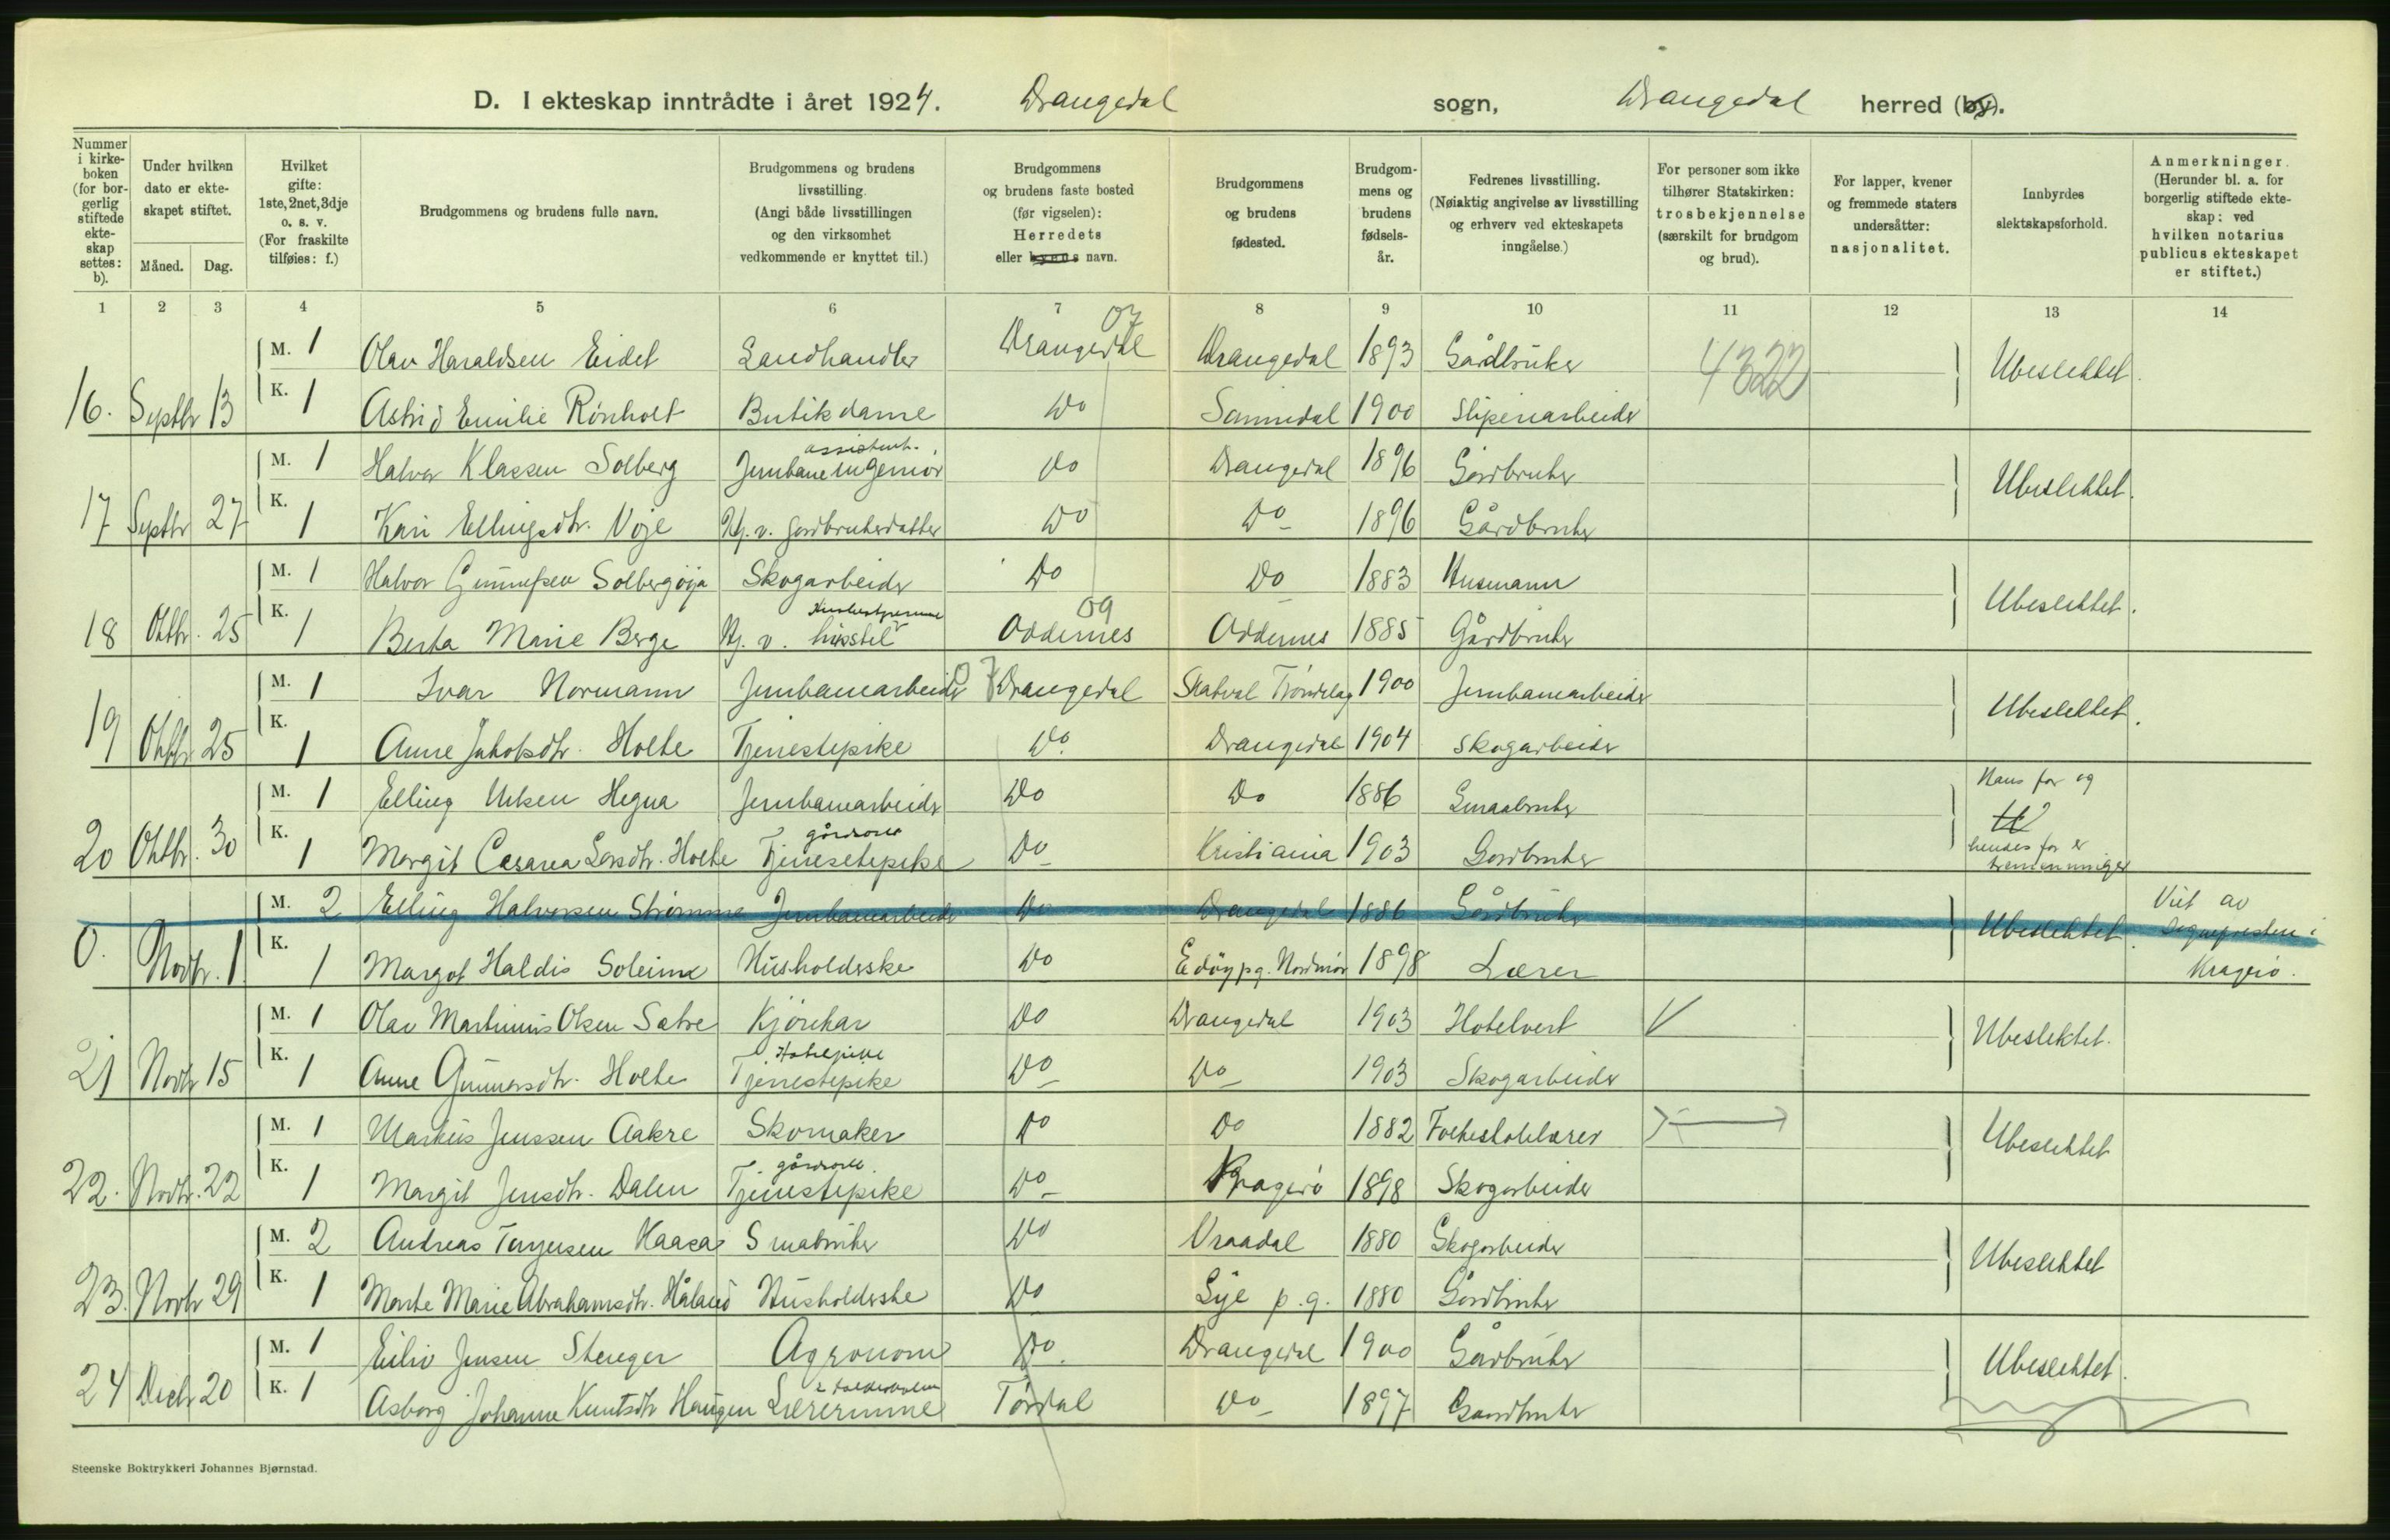 D. I ekteskap inntrådte i året 1924. Drangedal sogn, Drangedal herred (by).
Nummer i kirkeboken (for borgerlig stiftede ekteskap settes: b).
Under hvilken dato er ekteskapet stiftet.
Måned. Dag.
Hvilket gifte: 1ste, 2net, 3dje o. s. v. (For fraskilte tilføies: f.)
Brudgommens og brudens fulle navn.
Brudgommens og brudens livsstilling. (Angi både livsstillingen og den virksomhet vedkommende er knyttet til.)
Brudgommens og brudens faste bosted (før vigselen): Herredets eller byens navn.
Brudgommens og brudens fødested.
Brudgommens og brudens fødselsår.
Fedrenes livsstilling. (Nøiaktig angivelse av livsstilling og erhverv ved ekteskapets inngåelse.)
For personer som ikke tilhører Statskirken: trosbekjennelse (særskilt for brudgom og brud).
For lapper, kvener og fremmede staters undersåtter: nasjonalitet.
Innbyrdes slektskapsforhold.
Anmerkninger. (Herunder bl. a. for borgerlig stiftede ekteskap: ved hvilken notarius publicus ekteskapet er stiftet.)
1 2 3 4 5 6 7 8 9 10 11 12 13 14
07
M. 1 Olav Haraldsen Eidet Landhandler Drangedal Drangedal 1893 Gårdbruker 4322 Ubeslektet.
16. Septbr 13 K. 1 Astrid Emilie Rönholt Butikdame Do Sannidal 1900 Sliperiarbeider
assistent.
M. 1 Halvor Klassen Solberg Jernbaneingeniör Do Drangedal 1896 Gårdbruker Ubeslektet.
17 Septbr 27 K. 1 Kari Ellingsdtr. Voje Hj. v. gårdbrukerdatter Do Do 1896 Gårdbruker
M. 1 Halvor Gunnufsen Solbergöya Skogarbeider Do Do 1883 Husmann Ubeslektet.
09
18 Oktbr. 25 K. 1 Berta Marie Berge Hj. v. husstel Oddernes Oddernes 1885 Gårdbruker
M. 1 Ivar Normann Jernbanearbeider 07 Drangedal Skatval Tröndelag 1900 Jernbanearbeider Ubeslektet.
19 Oktbr. 25 K. 1 Anne Jakobsdtr. Holte Tjenestepike Do. Drangedal 1904 Skogarbeider
M. 1 Elling Hegna Jernbanearbeider Do Do 1886 Smaabruker Hans far og
20 Oktbr. 30 K. 1 Margit Cesarea Larsdtr. Holte Tjenestepike Do Kristiania 1903 Gårdbruker hendes far er tremenninger
M. 2 Elling Halvorsen Strömme Jernbanearbeider Do Drangedal 1886 Gårdbruker Ubeslektet. Viet av Sognepresten i Kragerö.
0. Novbr. 1 K. 1 Margot Haldis Soleim Husholderske Do Edöy pg. Nordmör 1898 Lærer
M. 1 Olav Martinius Olsen Sætre Kjörekar Do Drangedal 1903 Hotelvert Ubeslektet.
Hotelpike
21 Novbr 15 K. 1 Anne Gunnarsdtr. Holte Tjenestepike Do Do 1903 Skogarbeider
M. 1 Markus Jenssen Aakre Skomaker Do Do 1882 Folkeskolelærer Ubeslektet
22. Novbr. 22 K. 1 Margit Jensdtr. Dalen Tjenestepike Do Kragerö 1898 Skogarbeider
M. 2 Andreas Terjusen Kaasa Smabruker Do Vraadal 1880 Skogarbeider Ubeslektet
23. Novbr 29 K. 1 Marte Marie Abrahamsdtr. Håland Husholderske Do Lye p. g. 1880 Gårdbruker
M. 1 Eiliv Jensen Stenger Agronom Do. Drangedal 1900 Gårdbruker Ubeslektet.
24 Decbr 20 K. 1 Asborg Johanne Knutsdtr Haugen Lærerinne Tördal Do 1897 Gaardbruker
Steenske Boktrykkeri Johannes Bjørnstad.